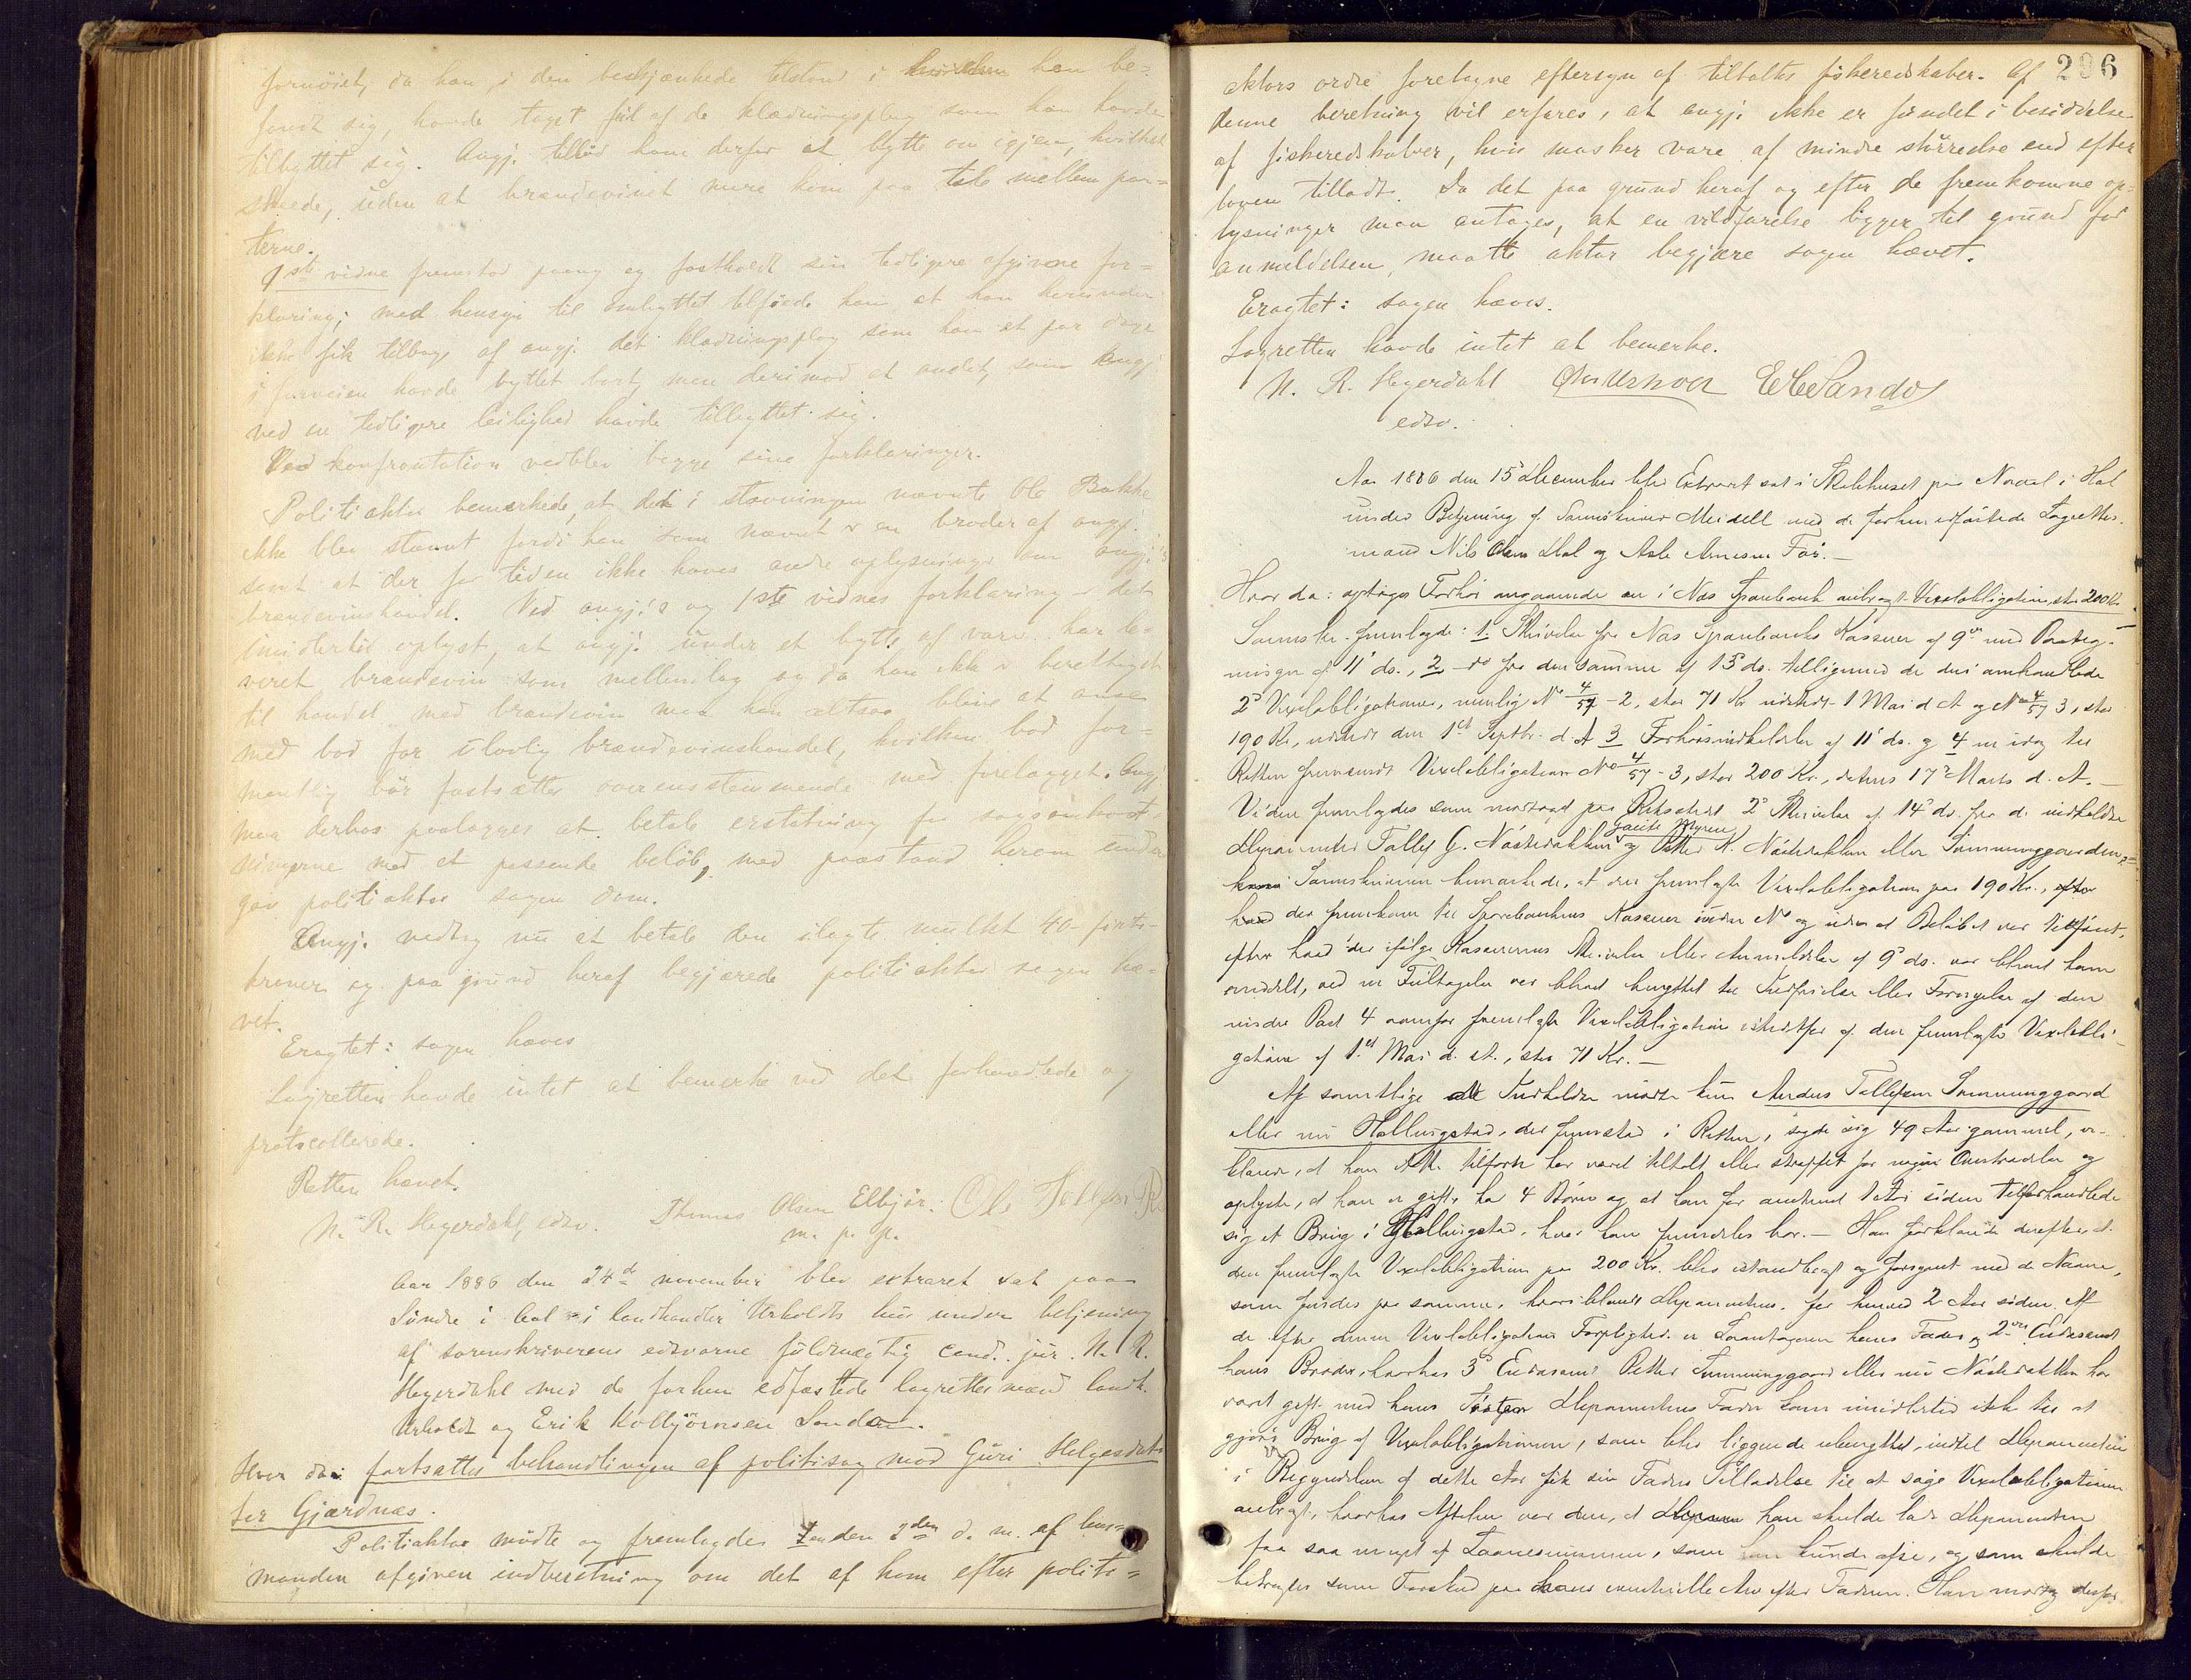 fornøiet, da han, i den beskjænkede tilstand i hvilken han be-
fandt sig, havde taget feil af de klædningsplag som han havde
tilbyttet sig. Angj. tillod ham derfor at bytte om igjen, hvilket
skeede, uden at brændevinet mere kom paa tale mellem par-
terne.
1ste vidne fremstod paany og fastholdt sin tidligere afgivne for-
klaring; med hensyn til ombyttet tilføiede han at han herunder
ikke fik tilbage af angj. det klædningsplag som han et par dage
i forveien havde byttet bort, men derimod et andet, som Angj
ved en tidligere leilighed havde tilbyttet sig.
Ved konfrontation vedblev begge sine forklaringer.
Politiaktor bemerkede, at den i stævningen nævnte Ole Bakke
ikke blev stævnt fordi han som nævnt er en broder af angj.
samt at der for tiden ikke haves andre oplysninger om angj.'s
brændevinshandel. Ved angj.'s og 1ste vidnes forklaring er det
imidlertid oplyst, at angj. under et bytte af varer har le-
veret brændevin som mellemlag og da han ikke er berettiget
til handel med brændevin maa han altsaa blive at anse
med bod for ulovlig brændevinshandel, hvilken bod for-
mentlig bør fastsættes overensstemmende med forelægget. Angj
maa derhos paalægges at betale erstatning for sagsomkost-
ningerne med et passende beløb, med paastand herom under
gav politiaktor sagen dom.
Angj. vedtog nu at betale den ilagte mulkt 40 - førti-
kroner og paa grund heraf begjærede politiaktor sagen hæ-
vet.
Eragtet: sagen hæves
Lagretten havde intet at bemerke ved det forhandlede og
protocollerede.
Retten hævet.
N. R. Hegerdahl, edsv. Thomas Olsen Elbjør. Ole Tollefsen
m. p. p.
Aar 1886 den 24de november blev extraret sat paa
Søndre i Aal i landhandler Urholdts hus under betjening
af sorenskriverens edsvorne fuldmægtig cand. jur. N. R.
Hegerdahl med de forhen edfæstede lagrettesmænd landh.
Urholdt og Erik Kolbjørnsen Sando.
Hvor da: fortsattes behandlingen af politisag mod Guri Helgesdat-
ter Gjærdnæs.
Politiaktor mødte og fremlagde en den 3den d. m. af lens-
manden afgiven indberetning om det af ham efter politi-
296
aktors ordre foretagne eftersyn af tiltaltes fiskeredskaber. Af
denne beretning vil erfares, at angj. ikke er fundet i besiddelse
af fiskeredskaber, hvis masker vare af mindre størrelse end efter
loven tilladt. Da det paa grund heraf og efter de fremkomne op-
lysninger maa antages, at en vildfarelse ligger til grund for
anmeldelsen, maatte aktor begjære sagen hævet.
Eragtet: sagen hæves.
Lagretten havde intet at bemerke.
N. R. Hegerdahl Urholdt EKSando
edsv.
Aar 1886 den 15de December blev Extraret sat i Skolehuset paa Nordal i Hol
under Betjening af Sorenskriver Meidell med de forhen edfæstede Lagrettes-
mænd Nils Olsen Hol og Asle Arnesen
Hvor da: optoges Forhør angaaende en i Næs Sparebank anbragt Vexelobligation, stor 200 Kr.
Sorenskr. fremlagde: 1. Skrivelse fra Næs Sparebanks Kasserer af 9de med Paateg-
ninger af 11' ds., 2 do fra den samme af 13' ds. tilligemed de deri omhandlede
2de Vexelobligationer, nemlig No 4/57 - 2, stor 71 Kr udstedt 1 Mai d A og No 4/57 3, stor
190 Kr, udstedt den 1st Septbr. d. A 3 Forhørsindkaldelse af 11' ds. og 4 en idag til
Retten fremsendt Vexelobligation No 4/57 - 3, stor 200 Kr., dateret 17de Marts d. A. -
Videre fremlagdes som modtaget paa Retsstedet 2de Skrivelser af 14' ds. fra de indkaldte
Deponenter Tollef G. Nästedakken og Petter K. Nästedakken eller Sæmunggaarden -
gaards Myren
Sorenskriveren bemærkede, at den fremlagte Vexelobligation paa 190 Kr., efter
hvad der fremkom til Sparebankens Kasserer uden No og uden at Beløbet var tilføiet,
efter hvad der ifølge Kassererens Skrivelse eller Anmeldelse af 9' ds. var blevet ham
meddelt, ved en Feiltagelse var blevet benyttet til Indfrielse eller Fornyelse af den
under Post 4 nævnte fremlagte Vexelobligation istedetfor af den fremlagte Vexelobli-
gation af 1st Mai d. A., stor 71 Kr. -
Af samtlige Indkaldte mødte kun Anders Tollefsen Sæmunggaard
eller nu Hallingstad, der fremstod i Retten, sagde sig 49 Aar gammel, er-
klærede, at han ikke tilforn har været tiltalt eller straffet for nogen Overtrædelse og
oplyste, at han er gift, har 4 Børn og at han for omtrent 1 Aar siden tilforhandlede
sig et Brug i Hallingstad, hvor han fremdeles bor. - Han forklarede derefter, at
den fremlagte Vexelobligation paa 200 Kr. blev istandbragt og forsynet med de Navne,
som findes paa samme, hvoriblandt Deponentens, for henved 2 Aar siden. Af
de efter denne Vexelobligation Forpligtede er Laantageren hans Fader, 2den Endossent
hans Broder, hvorhos 3de Endossent Petter Sæmunggaard eller nu Nästedakken har
været gift med hans Søster. Deponentens Fader kom imidlertid ikke til at
gjøre Brug af Vexelobligationen, som blev liggende ubenyttet, indtil Deponenten
i Begyndelsen af dette Aar fik sin Faders Tilladelse til at søge Vexelobligationen
anbragt, hvorhos Aftalen var den, at han skulde lade Deponenten
faa saa meget af Laanesummen, som han kunde afse, og som skulde
betragtes som Forskud paa hans eventuelle Arv efter Faderen. Han modtog derfor